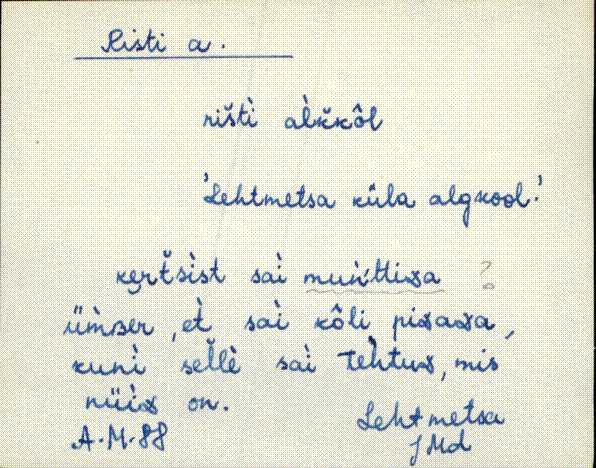 Risti a.
rištì̬ al̀kkôl
'Lehtmetsa küla algkool.'
kertsì̬st saì̬ muǹttisa ?
üm̀ber, et̀ saì̬ kôli pisasa,
kunì̬ sel̆lè saì̬ tehtus, mis
nüì̬s on.
A.M.88 Lehtmetsa
JMd